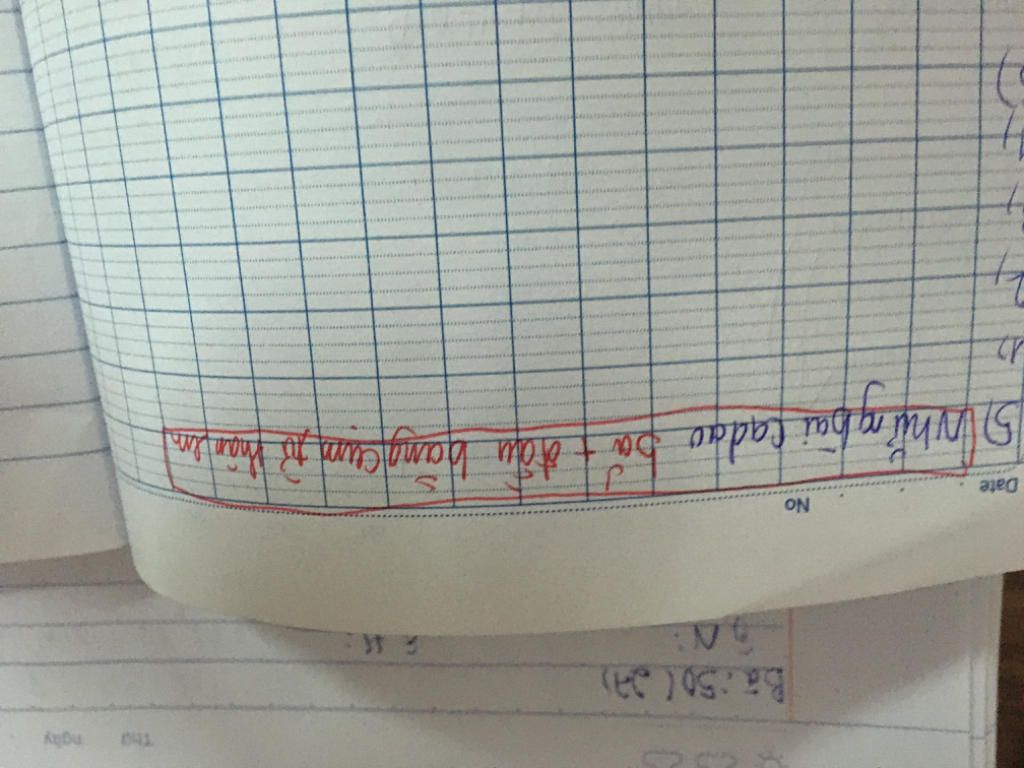 Date No
5) Những bài ca dao bắt đầu bằng cụm từ thân em
1)
2)
Thứ ngày
Bà: 50 (27)